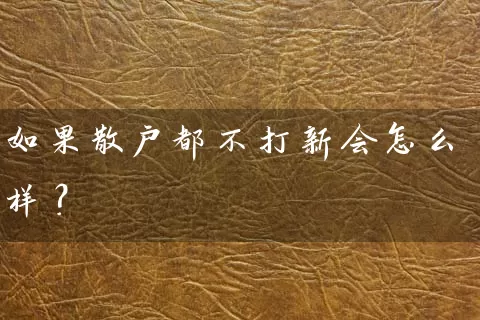 如果散户都不打新会怎么
样？